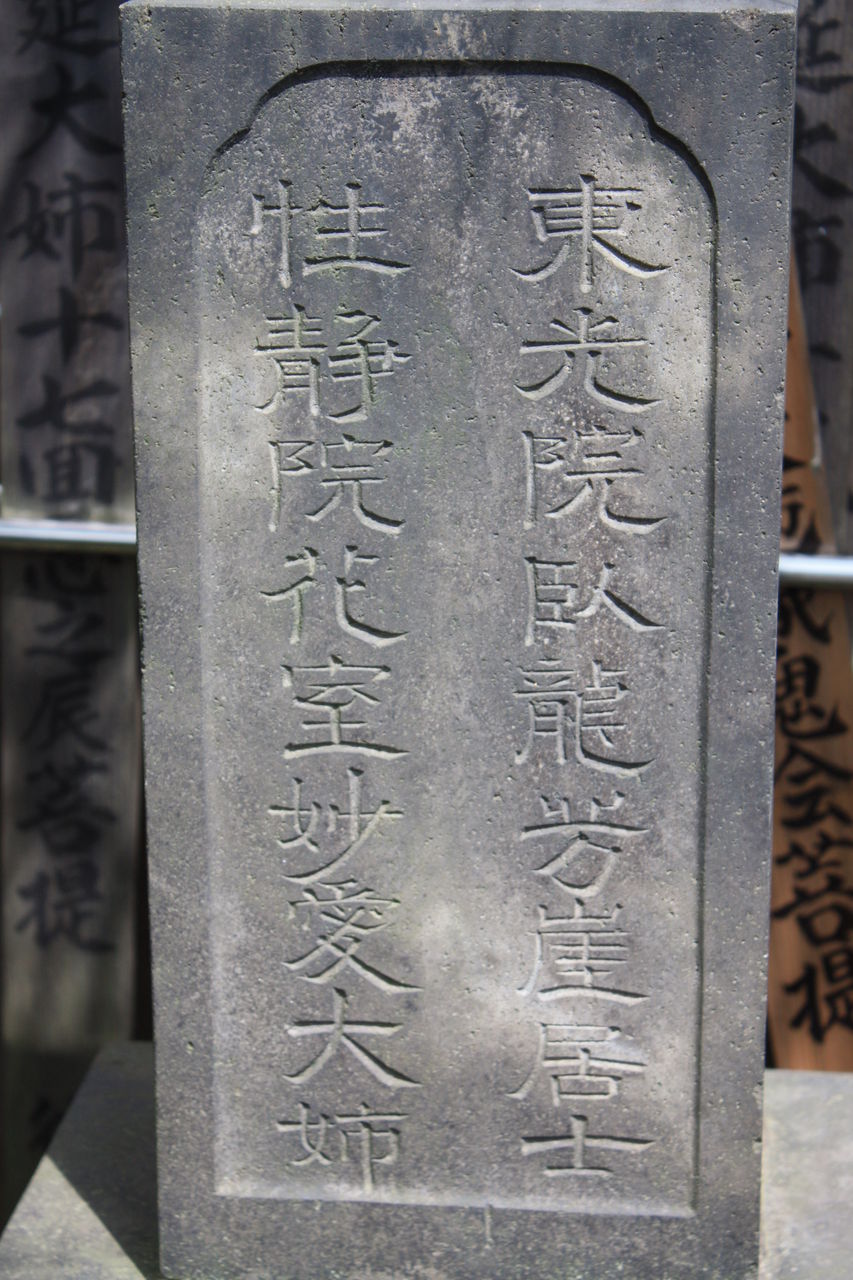 東光院臥龍芳崖居士
性静院花室妙愛大姉
延大姉十七回
之辰菩提
会菩提